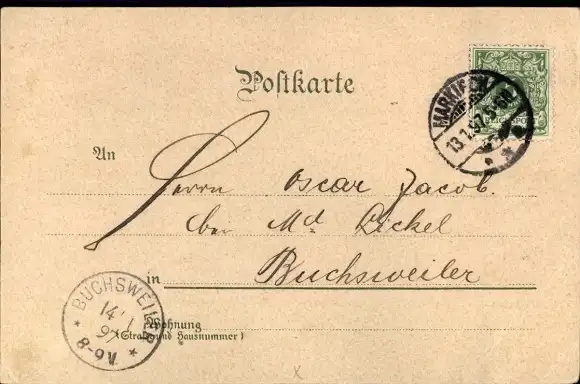 Postkarte
MARKIRCH
13.1.97.
An
Herrn Oscar Jacob.
bei Md Dickel
in Buchsweiler
BUCHSWEILER
14 1
97
8-9V.
Wohnung
(Straße und Hausnummer)